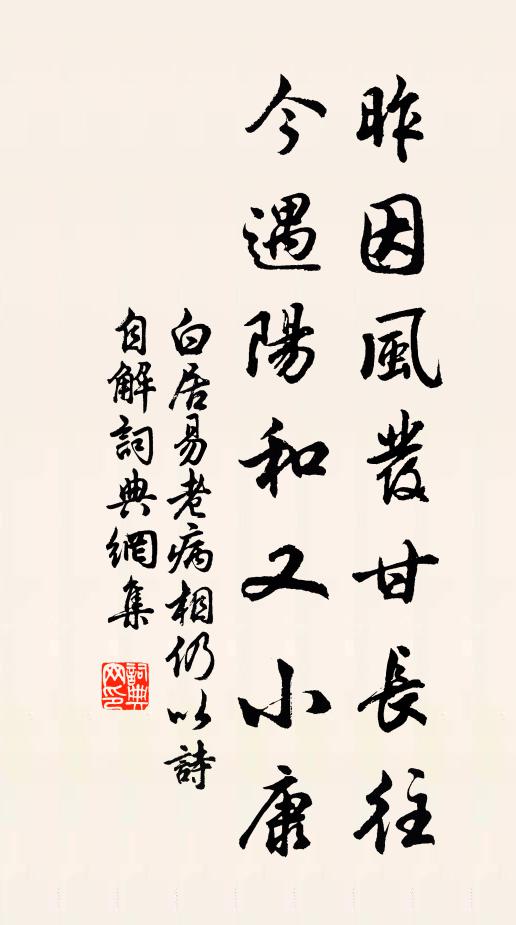 昨因風發甘長往
今遇陽和又小康
白居易老病相仍以詩
自解詞典網集
詞典
网印